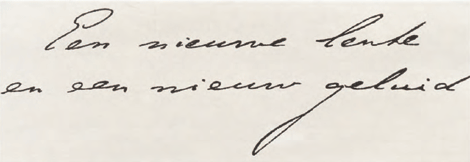 Een nieuwe lente
en een nieuw geluid